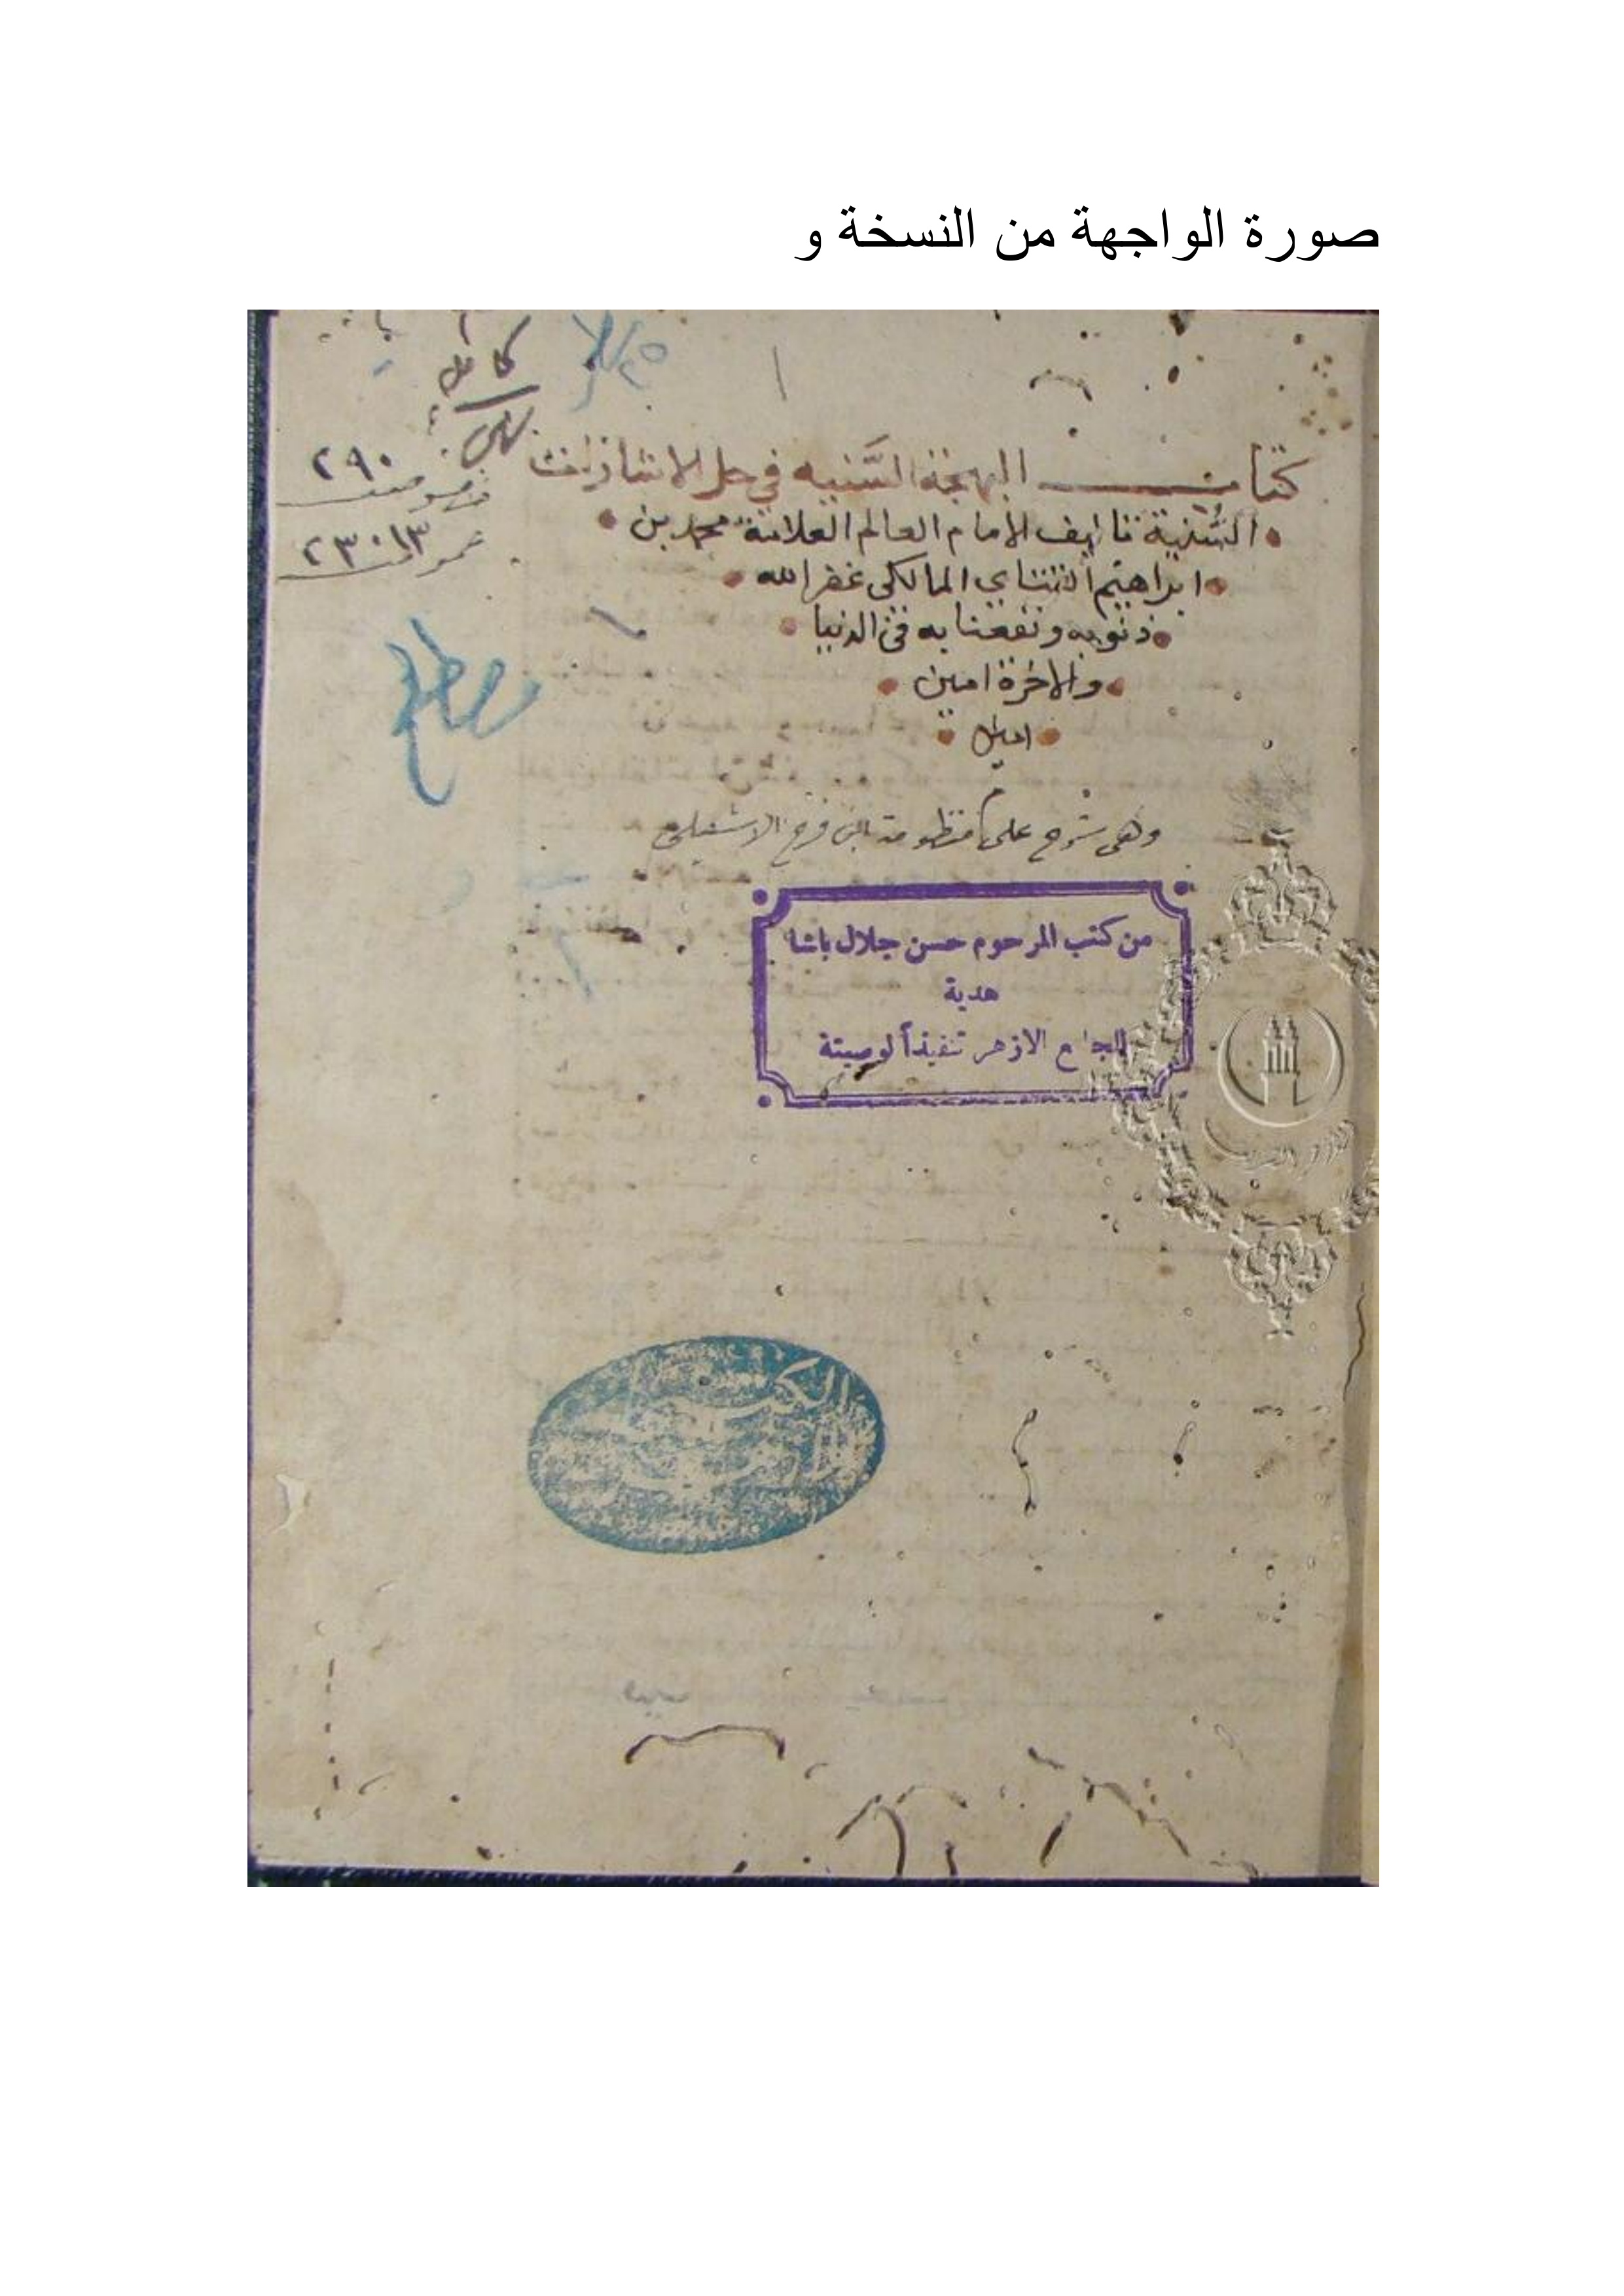 صورة الواجهة من النسخة و
كامل
٢٩٠
خصوصيت
٢٣٠١٣
عموميت
كتاب البهجة السَّنيه في حل الاشارات
السُّنية تاليف الامام العالم العلامة محمد بن
ابراهيم التتاي المالكى غفر الله
ذنوبه ونفعنا به فى الدنيا
والاخرة امين
امين
وهى شرح على منظومة ابن فرح الاشبيلى
من كتب المرحوم حسن جلال باشا
هدية
للجامع الازهر تنفيذاً لوصيتة
الأزهر الشريف